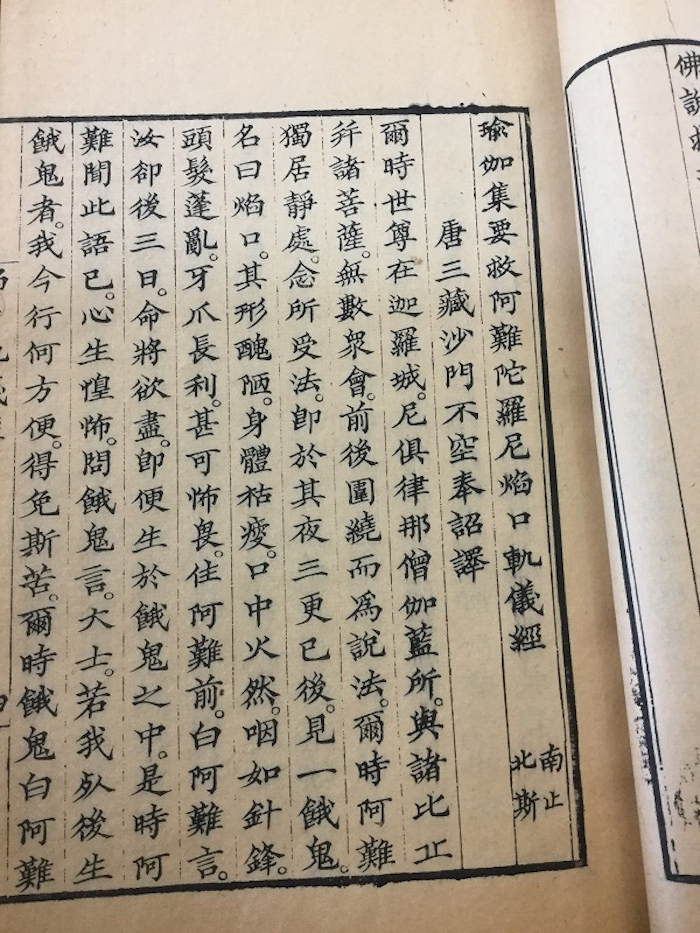 佛說
瑜伽集要救阿難陀羅尼焰口軌儀經
南止
北斯
唐三藏沙門不空奉詔譯
爾時世尊在迦羅城。尼俱律那僧伽藍所。與諸比丘
幷諸菩薩。無數衆會。前後圍繞而爲說法。爾時阿難
獨居靜處。念所受法。即於其夜三更已後。見一餓鬼。
名曰焰口。其形醜陋。身體枯瘦。口中火然。咽如針鋒。
頭髮蓬亂。牙爪長利。甚可怖畏。住阿難前。白阿難言。
汝卻後三日。命將欲盡。即便生於餓鬼之中。是時阿
難聞此語已。心生惶怖。問餓鬼言。大士。若我歿後生
餓鬼者。我今行何方便。得免斯苦。爾時餓鬼白阿難